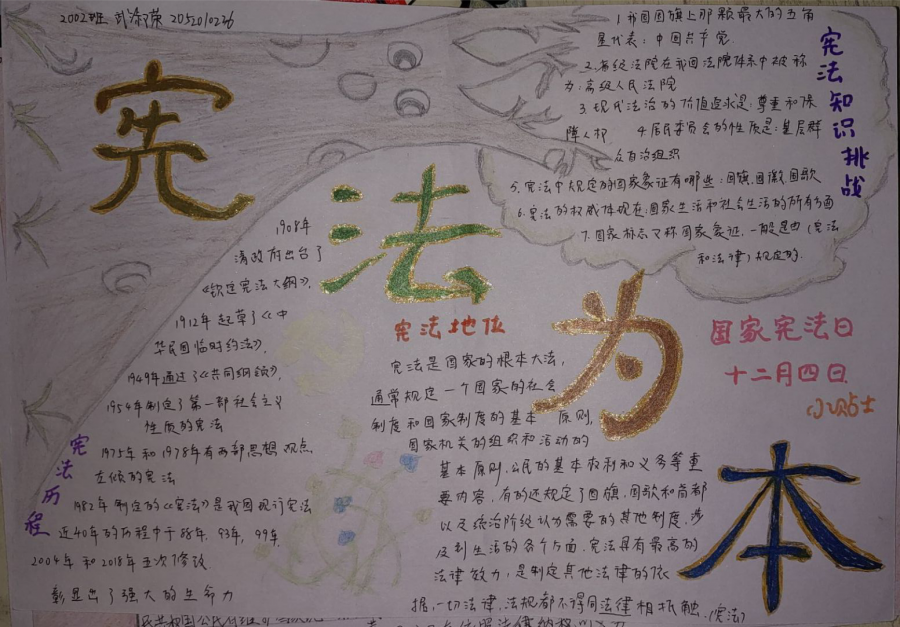 2002班
宪
法
为
本
1.我国国旗上那颗最大的五角
星代表：中国共产党.
2.高级法院在我国法院体系中被称
为:高级人民法院
3.现代法治的价值追求是:尊重和保
障人权 4.居民委员会的性质是:基层群
众自治组织
5.宪法中规定的国家象征有哪些:国旗.国徽.国歌
6.宪法的权威体现在:国家生活和社会生活的所有方面
7.国家标志又称国家象征,一般是由(宪法
和法律)规定的.
宪法知识挑战
1908年
清政府出台了
《钦定宪法大纲》,
1912年起草了《中
华民国临时约法》,
1949年通过了《共同纲领》,
1954年制定了第一部社会主义
性质的宪法
1975年和1978年有两部思想观点
左倾的宪法
1982年制定的《宪法》是我国现行宪法
近40年的历程中于88年,93年,99年,
2004年和2018年五次修改.
彰显出了强大的生命力
宪法历程
宪法地位
宪法是国家的根本大法,
通常规定一个国家的社会
制度和国家制度的基本原则,
国家机关的组织和活动的
基本原则,公民的基本权利和义务等重
要内容,有的还规定了国旗,国歌和首都
以及统治阶级认为需要的其他制度,涉
及到生活的各个方面.宪法具有最高的
法律效力,是制定其他法律的依
据,一切法律,法规都不得同法律相抵触.(宪法)
国家宪法日
十二月四日
小贴士